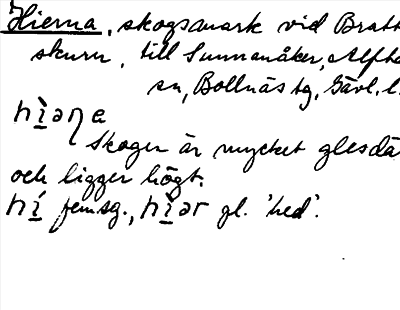 Hierna, skogsmark vid Bratt
skuru, till Sunnanåker, Alfta
sn, Bollnäs tg, Gävl. l.
hi̱əŋa
Skogen är mycket glesdä
och ligger högt.
hí̱ fem sg., hì̱ər gl. 'hed'.